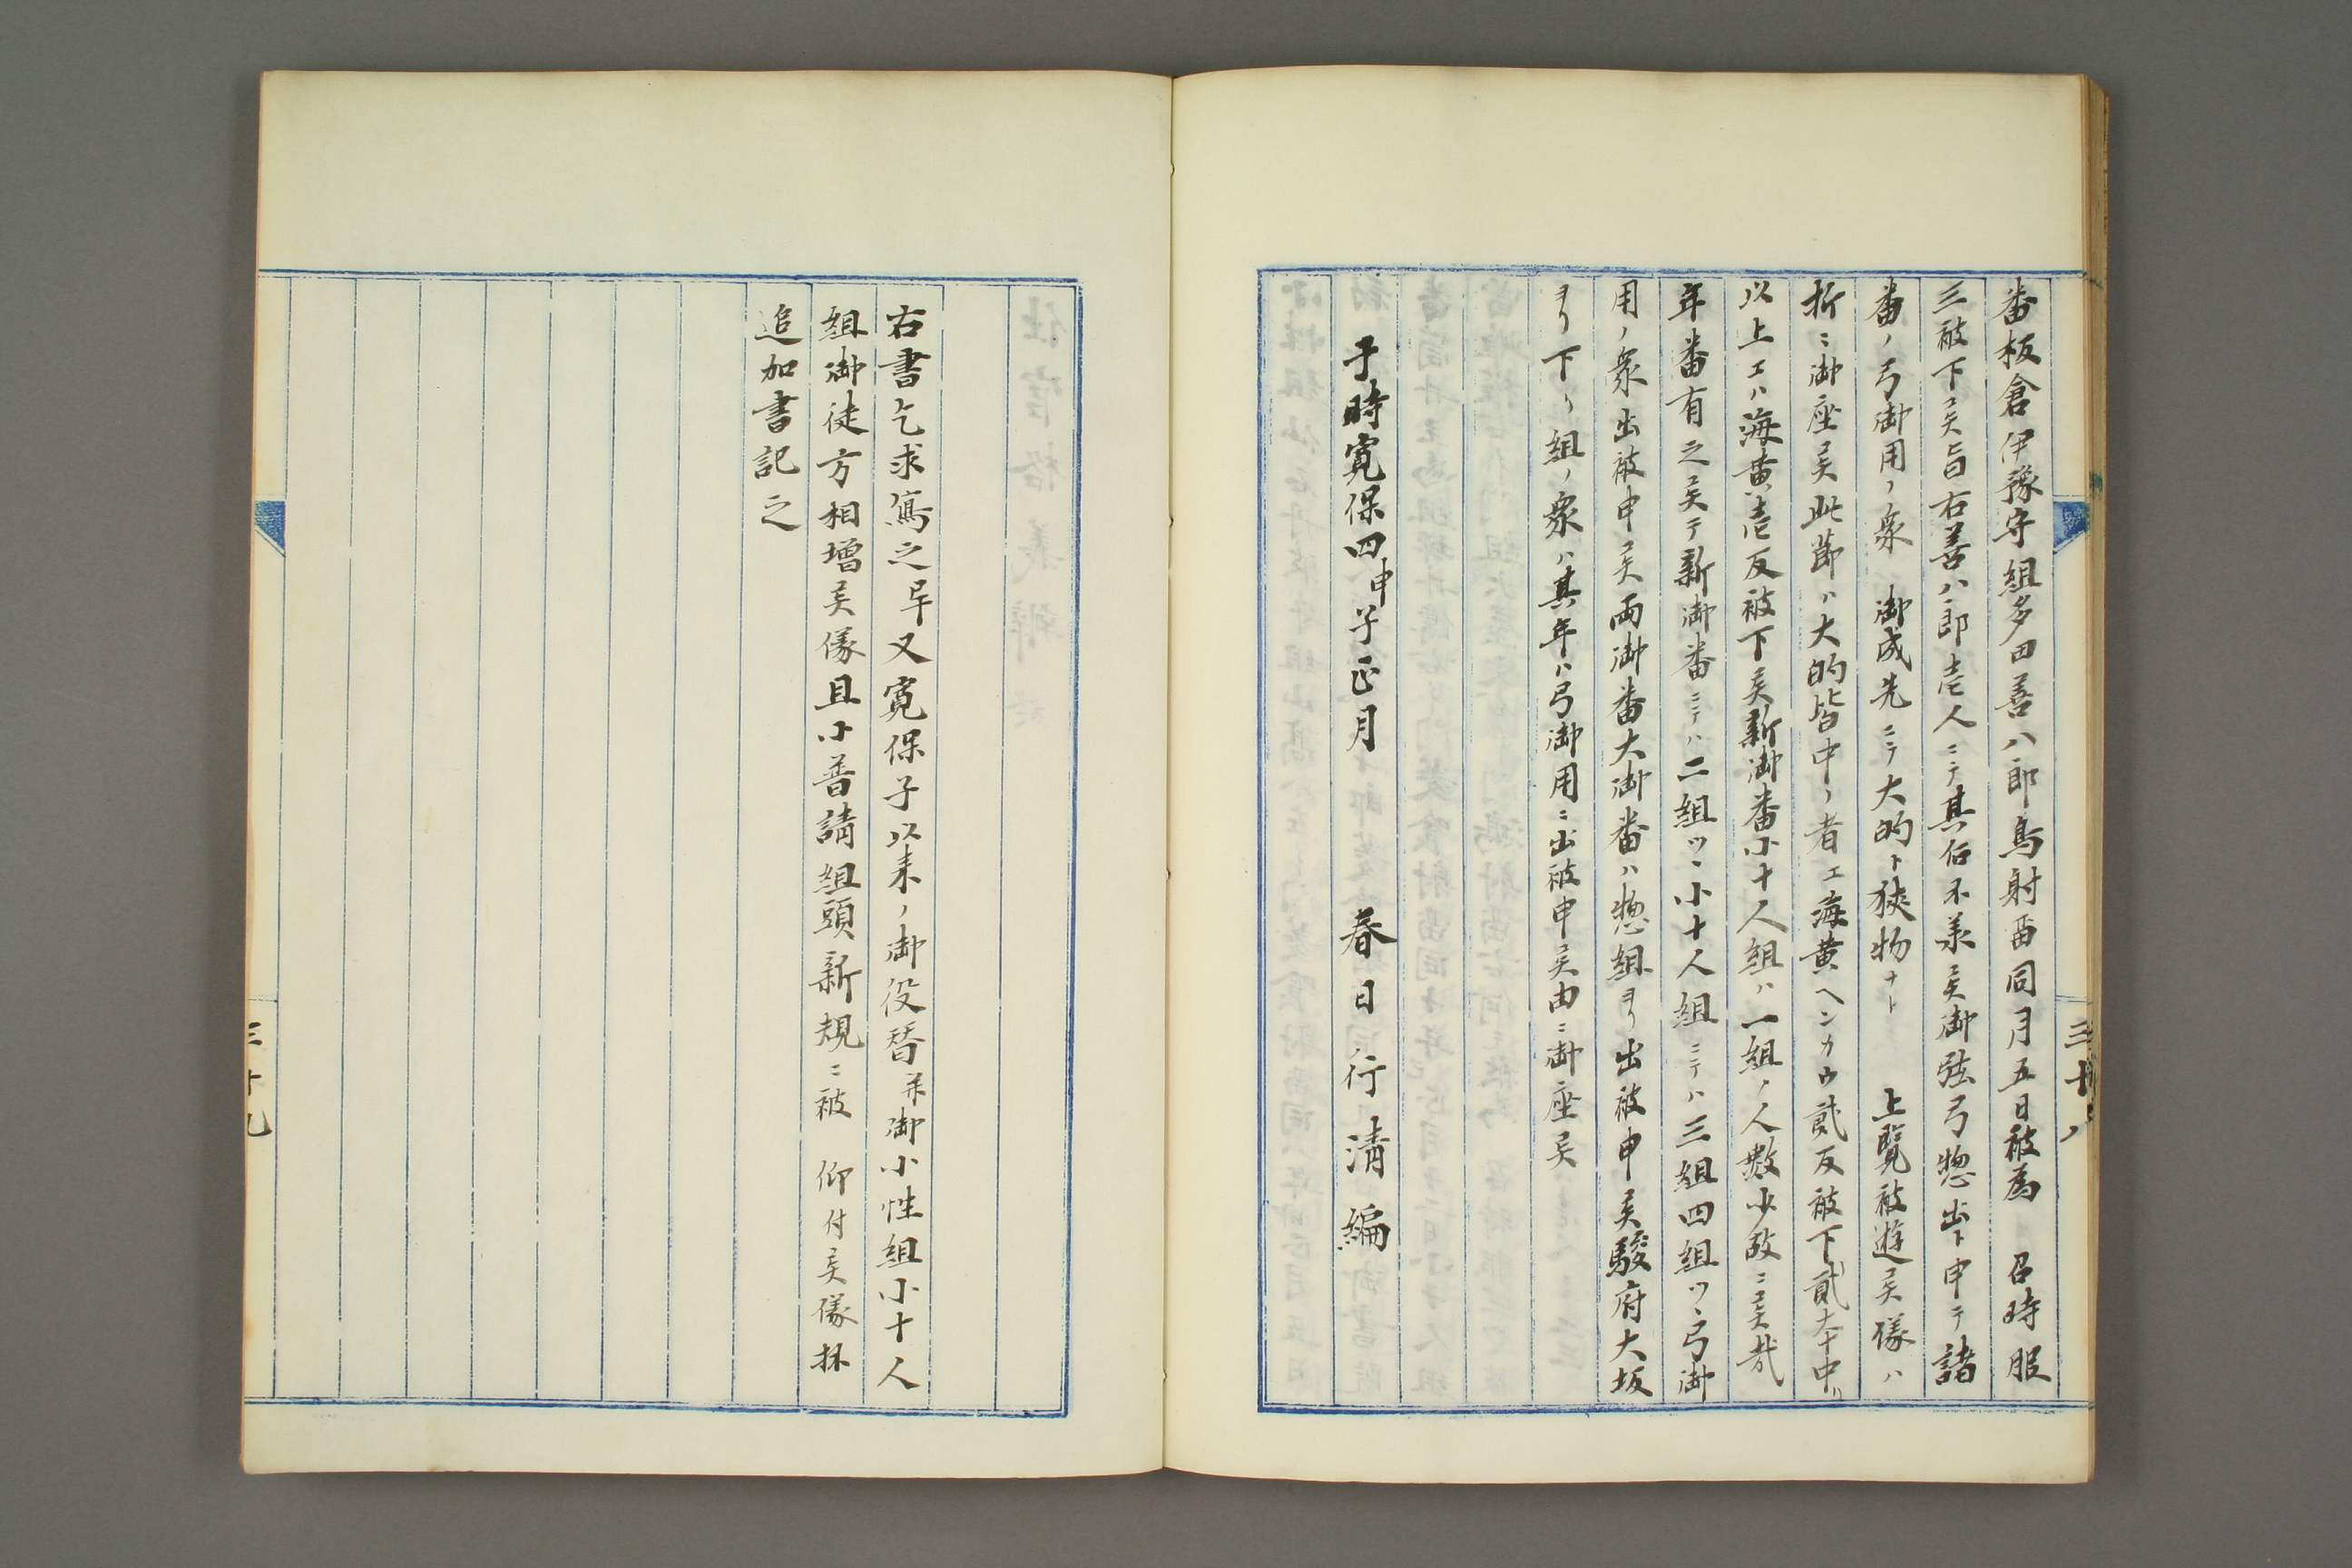 番板倉伊豫守組多田善八郎鳥射畄同月五日被為　召時服
三被下之旨右善八郎壱人ニテ其后不承候御弦弓惣出ト申テ諸
番ノ弓御用ノ衆　御成先ニテ大的ト狭物ナト　上覧被遊候儀ハ
折ニ御座候此節ハ大的皆中ノ者エ海黄ヘンカウ貮反被下貮本中ハ
以上エハ海黄壱反被下候新御番小十人組ハ一組ノ人数少故ニ候哉
年番有之候テ新御番ニテハ二組ツヽ小十人組ニテハ三組四組ツヽ弓御
用ノ衆出被申候両御番大御番ハ惣組ヨリ出被申候駿府大坂
ヨリ下リ組ノ衆ハ其年ハ弓御用ニ出被申候由ニ御座候
于時寛保四甲子正月　　春日行清編
三十八
右書乞求寫之畢又寛保子以来ノ御役替并御小性組小十人
組御徒方相増候儀且小普請組頭新規ニ被　仰付候儀抔
追加書記之
三十九